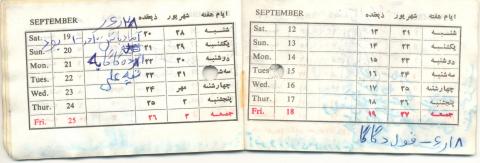 SEPTEMBER ذیقعده شهریور ایام هفته
Sat. 19 ۲۰ ۲۸ شنبه
Sun. 20 ۲۹ یکشنبه
بود
Mon. 21 ۳۰ دوشنبه
Tues. 22 ۲۳ ۳۱
علی
Wed. 23 ۲۴ مهر چهارشنبه
Thur. 24 ۲۵ ۲ پنجشنبه
Fri. 25 ۲۶ ۳ جمعه
SEPTEMBER ذیقعده شهریور ایام هفته
Sat. 12 ۱۳ ۲۱ شنبه
Sun. 13 ۱۴ ۲۲ یکشنبه
Mon. 14 ۱۵ ۲۳ دوشنبه
Tues 15 ۱۶ ۲۴ سه‌شنبه
Wed. 16 ۱۷ ۲۵ چهارشنبه
Thur. 17 ۱۸ ۲۶ پنجشنبه
Fri. 18 ۱۹ ۲۷ جمعه